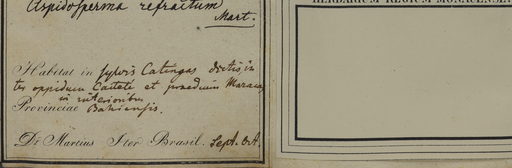 Aspidosperma refractum
Mart.
Habitat in sylvis Catingas dictis in
ter oppidum Caiteté et praedium Maracas
in interioribus
Provinciae Bahiensis.
Dr Martius Iter Brasil. Sept. Oct.
HERBARIUM REGIUM MONACENSE